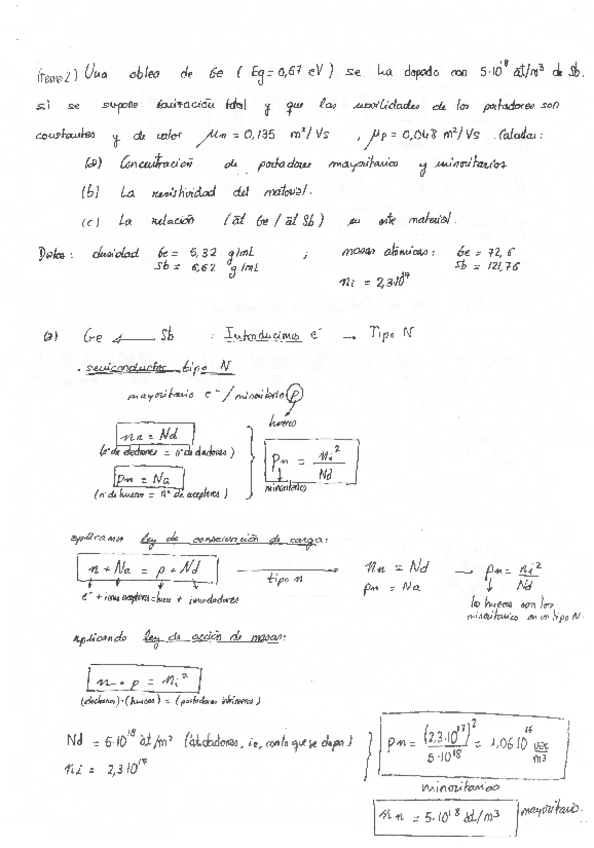 (Tema 2) Una oblea de Ge (Eg = 0,67 eV) se ha dopado con 5·10^18 at/m³ de Sb.
si se supone ionización total y que las movilidades de los portadores son
constantes y de valor μn = 0,135 m²/Vs , μp = 0,048 m²/Vs. Calcular:
(a) Concentración de portadores mayoritarios y minoritarios
(b) La resistividad del material.
(c) La relación (at Ge / at Sb) en este material.
Datos: densidad Ge = 5,32 g/mL ; masas atómicas: Ge = 72,6
Sb = 6,62 g/mL Sb = 121,76
ni = 2,3·10^17
(a) Ge ← Sb : Introducimos e⁻ → Tipo N
· semiconductor tipo N
mayoritario e⁻ / minoritario p
huecos
nn = Nd
(nº de electrones = nº de dadores)
pn = ni² / Nd
minoritarios
pn = Na
(nº de huecos = nº de aceptores)
aplicamos ley de conservación de carga:
n + Na = p + Nd → tipo n nn = Nd → pn = ni² / Nd
pn = Na
e⁻ + iones aceptores = hueco + iones dadores
los huecos son los
minoritarios en un tipo N.
aplicando ley de acción de masas:
n · p = ni²
(electrones)·(huecos) = (portadores intrínsecos)
Nd = 5·10^18 at/m² (át. dadores, ie, con lo que se dopa)
ni = 2,3 10^17
pn = (2,3·10^17)² / 5·10^18 = 1,06 10^16 uec/m3
minoritarios
nn = 5·10^18 at/m3 mayoritario.